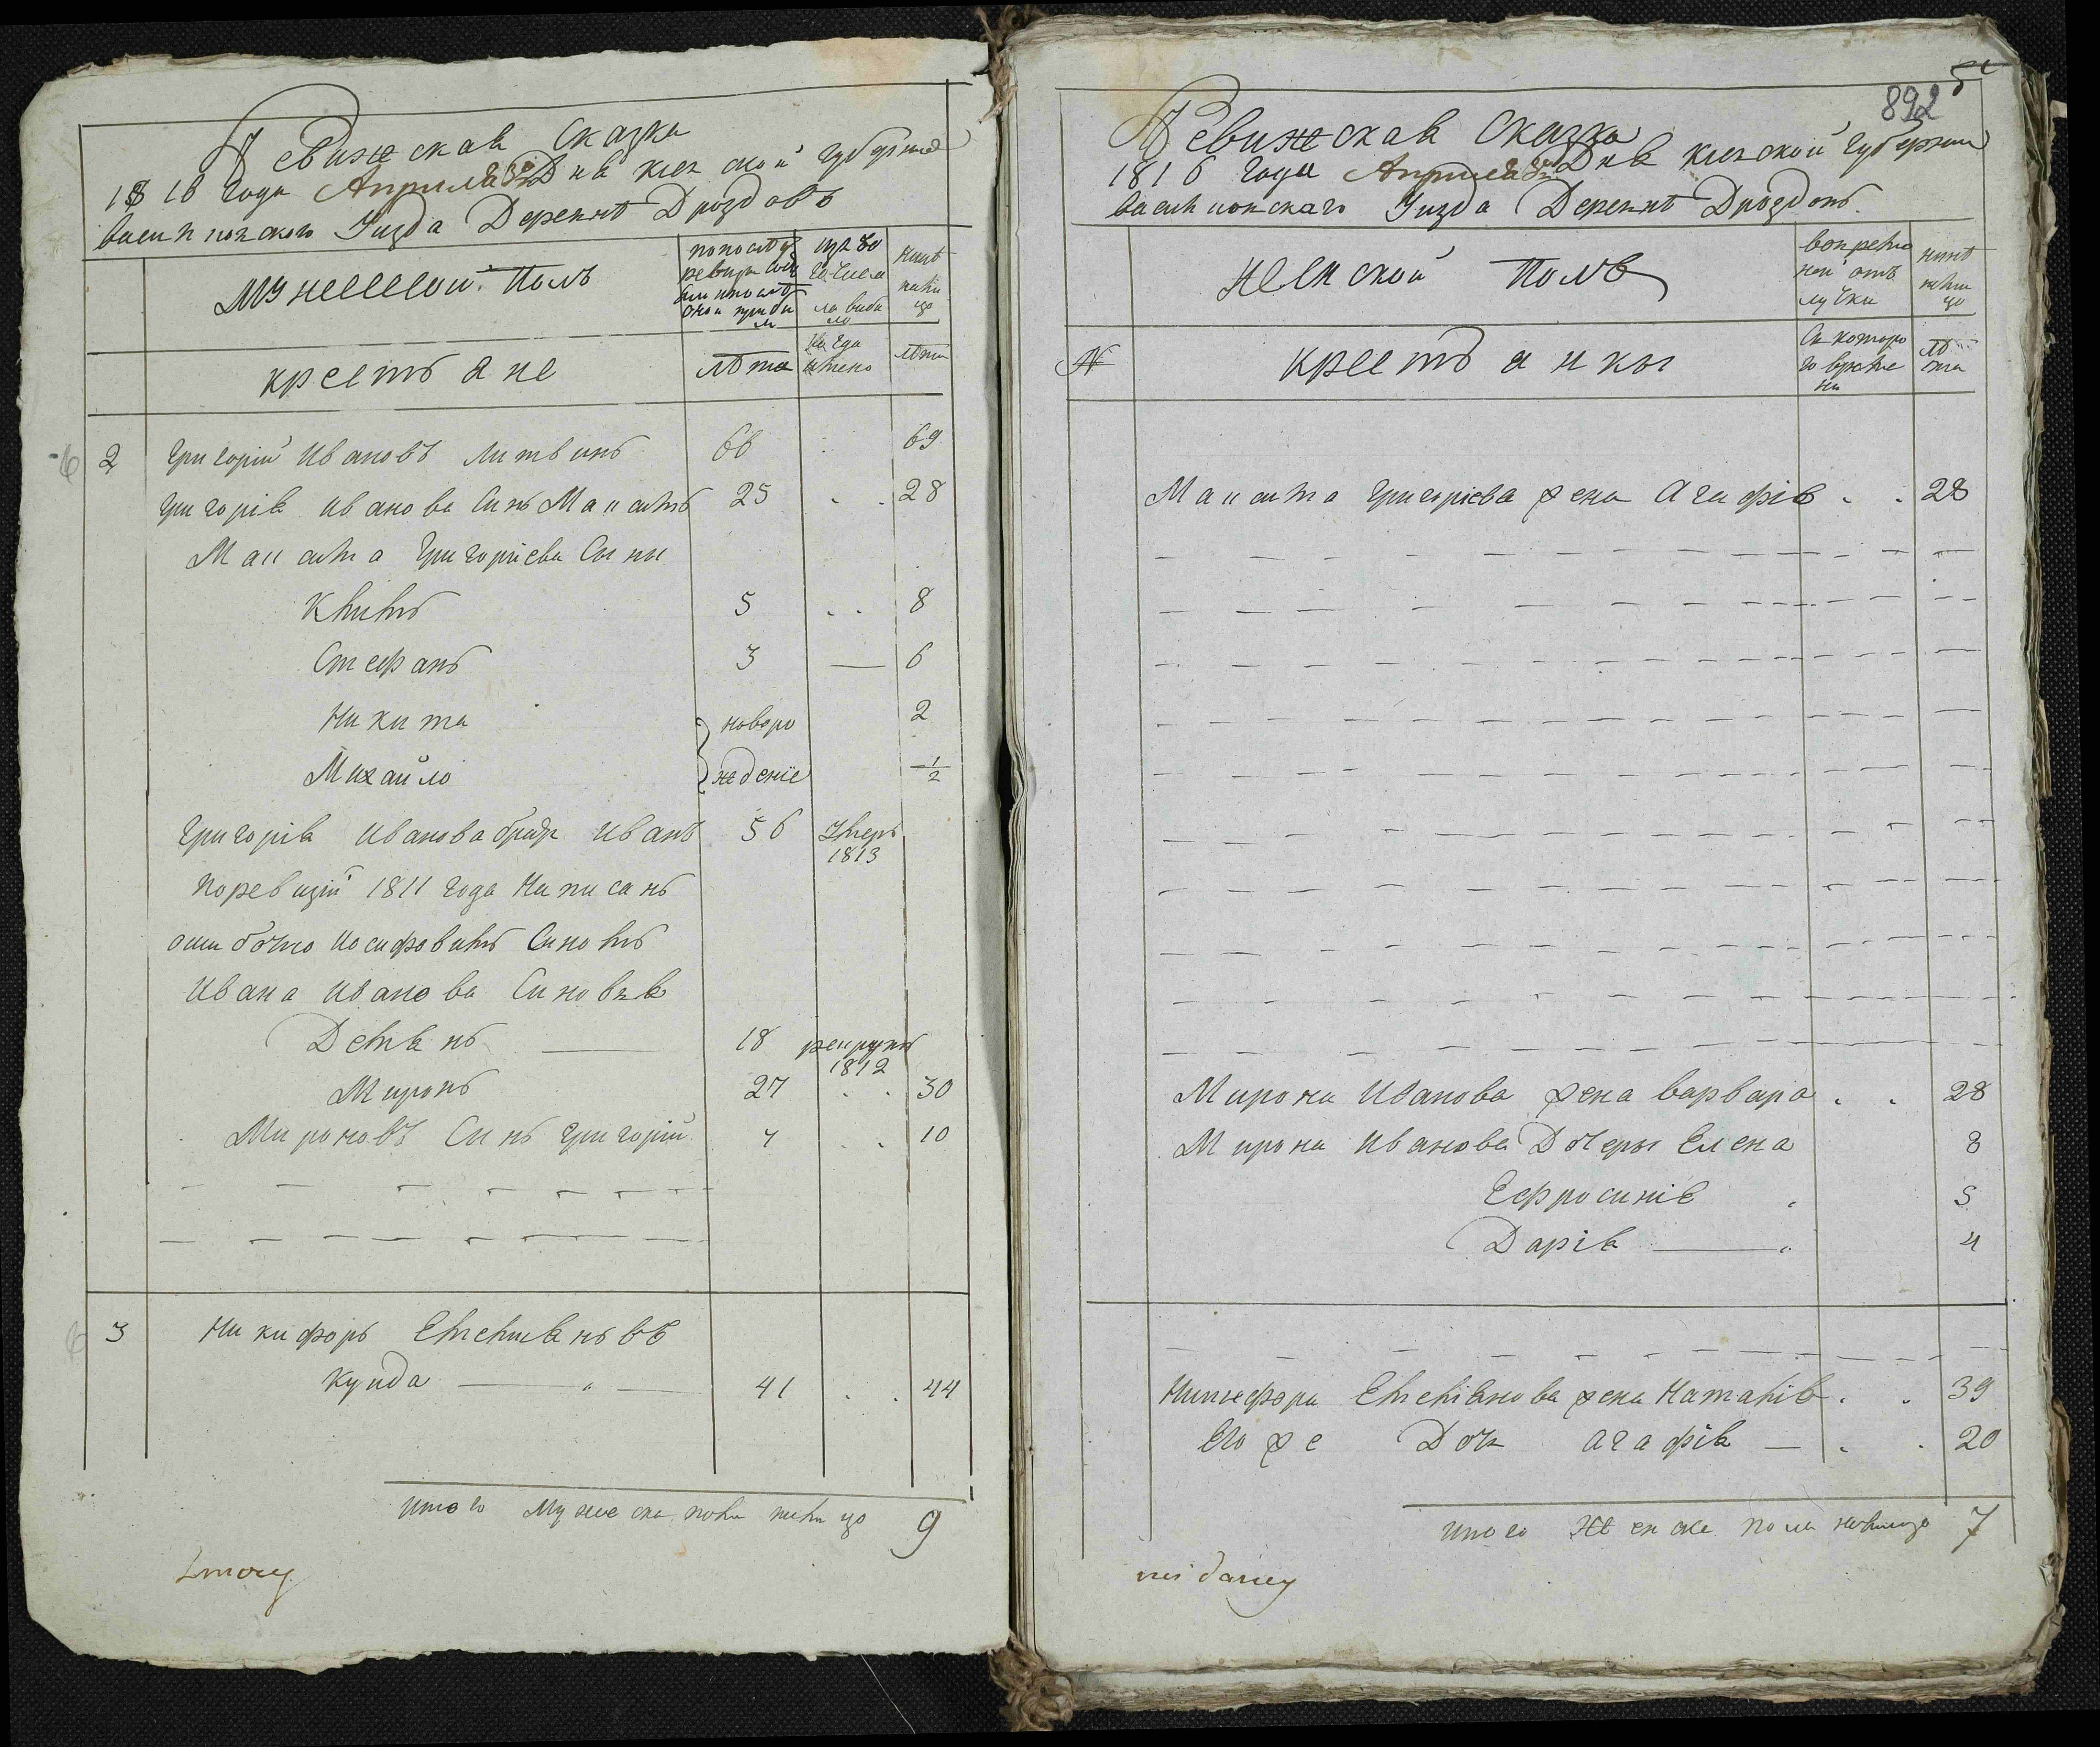 Ревижская Сказка
1816 Года Апреля 30 Дня киевской губернии
васильковскаго Уизда Деревнѣ Дроздовъ
мужеской Полъ
по послѣд ревизи состо
изъ то го числа выбило
ныне налицо
крестьяне
лѣта
когда имено
лѣта
2 Григорій Ивановъ Литвинъ 66 69
Григорія Иванова Синъ Максимъ 25 . . 28
Максима Григоріева Сыны
Климъ 5 . . 8
Стефанъ 3 — 6
Никита новоро 2
Михайло жденіе 1/2
Григорія Иванова братъ Иванъ 56 Умеръ 1813
По ревизіи 1811 года Написанъ
ошибочно Иосифовимъ Синомъ
Ивана Иванова Синовья
Демянъ — 18 рекрутъ 1812
Миронъ 27 . . 30
Мироновъ Синъ Григорій 7 . . 10
3 Никифоръ Емельяновъ
Кунда — „ — 41 . . 44
Итого Мужеска пола налицо 9
892
Ревижская Сказка
1816 Года Апреля 30 Дня киевской Губернии
васильковскаго Уизда Деревнѣ Дроздовъ
женской Полъ
во временой отлучки
ныне налицо
N крестьянки
Съ которого времени
лѣта
Максима Григоріева жена Агафія . . 28
Мирона Иванова жена варвара . . 28
Мирона Иванова Дочеры Елена 8
Ефросинія „ 5
Дарія — „ 4
Никифора Емеліанова жена Наталія . . 39
Его же Дочь Агафія — . . 20
Итого Женска пола налицо 7